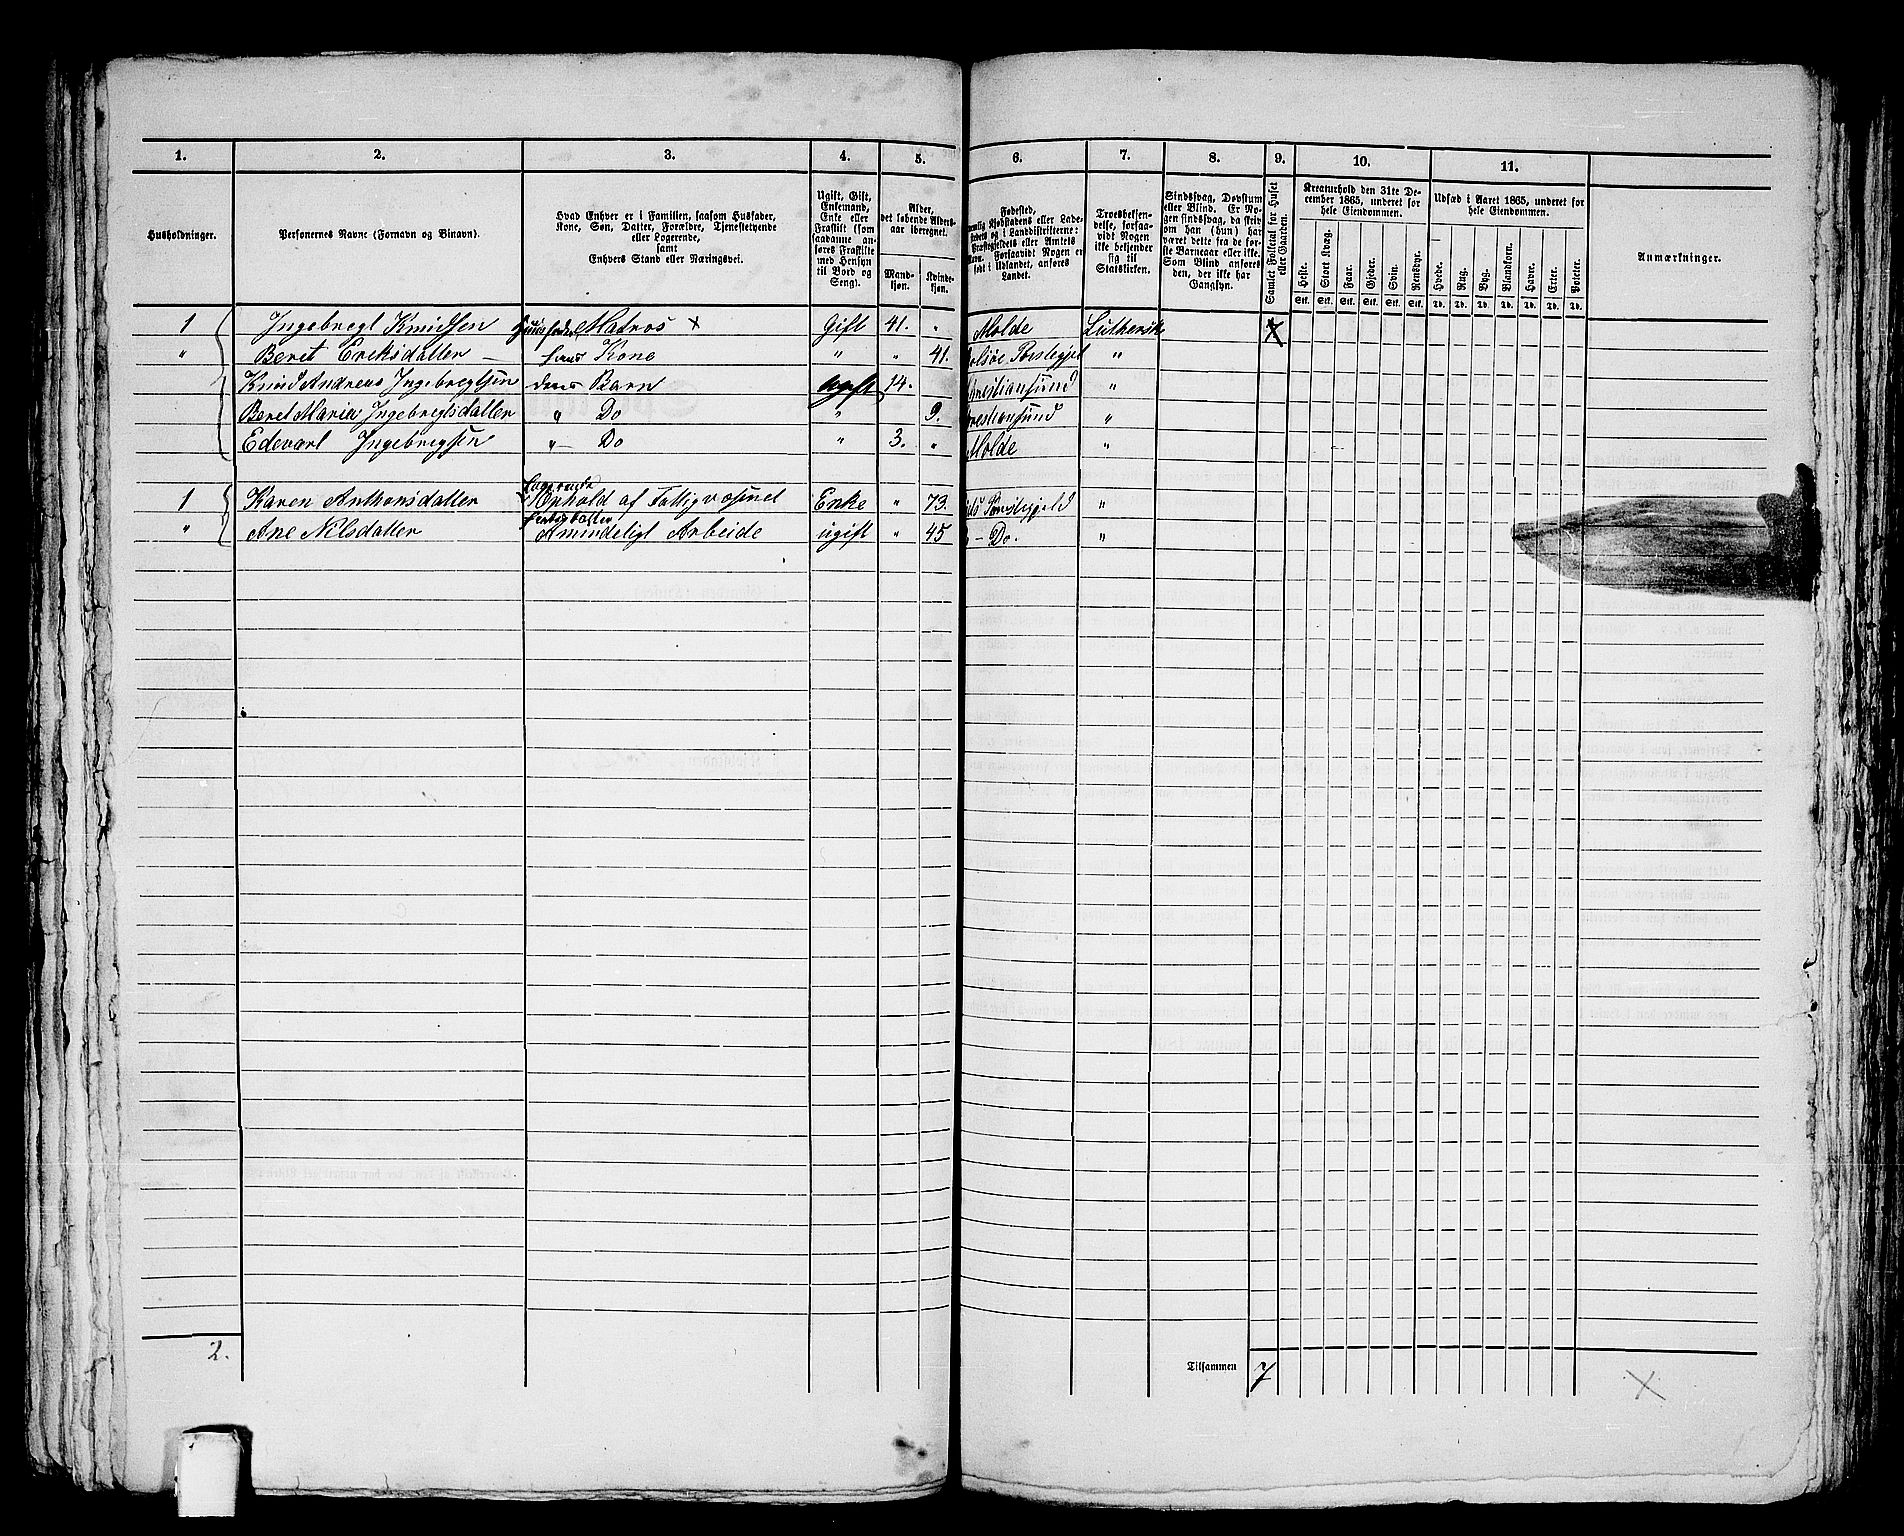 1. 2. 3. 4. 5. 6. 7. 8. 9. 10. 11.
Husholdninger.
Personernes Navne (Fornavn og Binavn).
Hvad Enhver er i Familien, saasom Husfader,
Kone, Søn, Datter, Forældre, Tjenestetyende
eller Logerende,
samt
Enhvers Stand eller Næringsvei.
Ugift, Gift,
Enkemand,
Enke eller
Fraskilt (som
saadanne an-
føres Fraskilte
med Hensyn
til Bord og
Seng).
Alder,
det løbende Alders-
aar iberegnet.
Mand-
kjøn.
Kvinde-
kjøn.
Fødested,
nemlig Kjøbstadens eller Lade-
stedets og i Landdistrikterne:
Præstegjeldets eller Amtets
Navn. Forsaavidt Nogen er
født i Udlandet, anføres
Landet.
Troesbekjen-
delse, forsaa-
vidt Nogen
ikke bekjender
sig til
Statskirken.
Sindssvag, Døvstum
eller Blind. Er No-
gen sindssvag, da skriv
om han (hun) har
været dette fra de før-
ste Barneaar eller ikke.
Som Blind anføres
den, der ikke har
Gangsyn.
Samlet Folketal for Huset
eller Gaarden.
Kreaturhold den 31te De-
cember 1865, underet for
hele Eiendommen.
Heste. Stort Kvæg. Faar. Gjeder. Svin. Rensdyr.
Stk. Stk. Stk. Stk. Stk. Stk.
Udsæd i Aaret 1865, underet for
hele Eiendommen.
Hvede. Rug. Byg. Blandkorn. Havre. Erter. Poteter.
Td. Td. Td. Td. Td. Td. Td.
Anmærkninger.
1 Ingebregt Knudsen Huusfader Matros × Gift 41. " Molde Luthersk 7
" Beret Eriksdatter – hans Kone " " 41. "
Knud Andreas Ingebregtsen deres Barn ugift 14. Christiansund "
Beret Maria Ingebregtsdatter " Do " 9. Christiansund "
Edevart Ingebregtsen " – Do " 3. " Molde "
Logerende
1 Karen Anthonsdatter Ophold af Fattigvæsnet Enke " 73. Præstegjeld "
" Ane Nilsdatter Almindeligt Arbeide ugift " 45 " – Do. "
2.
Tilsammen 7
×